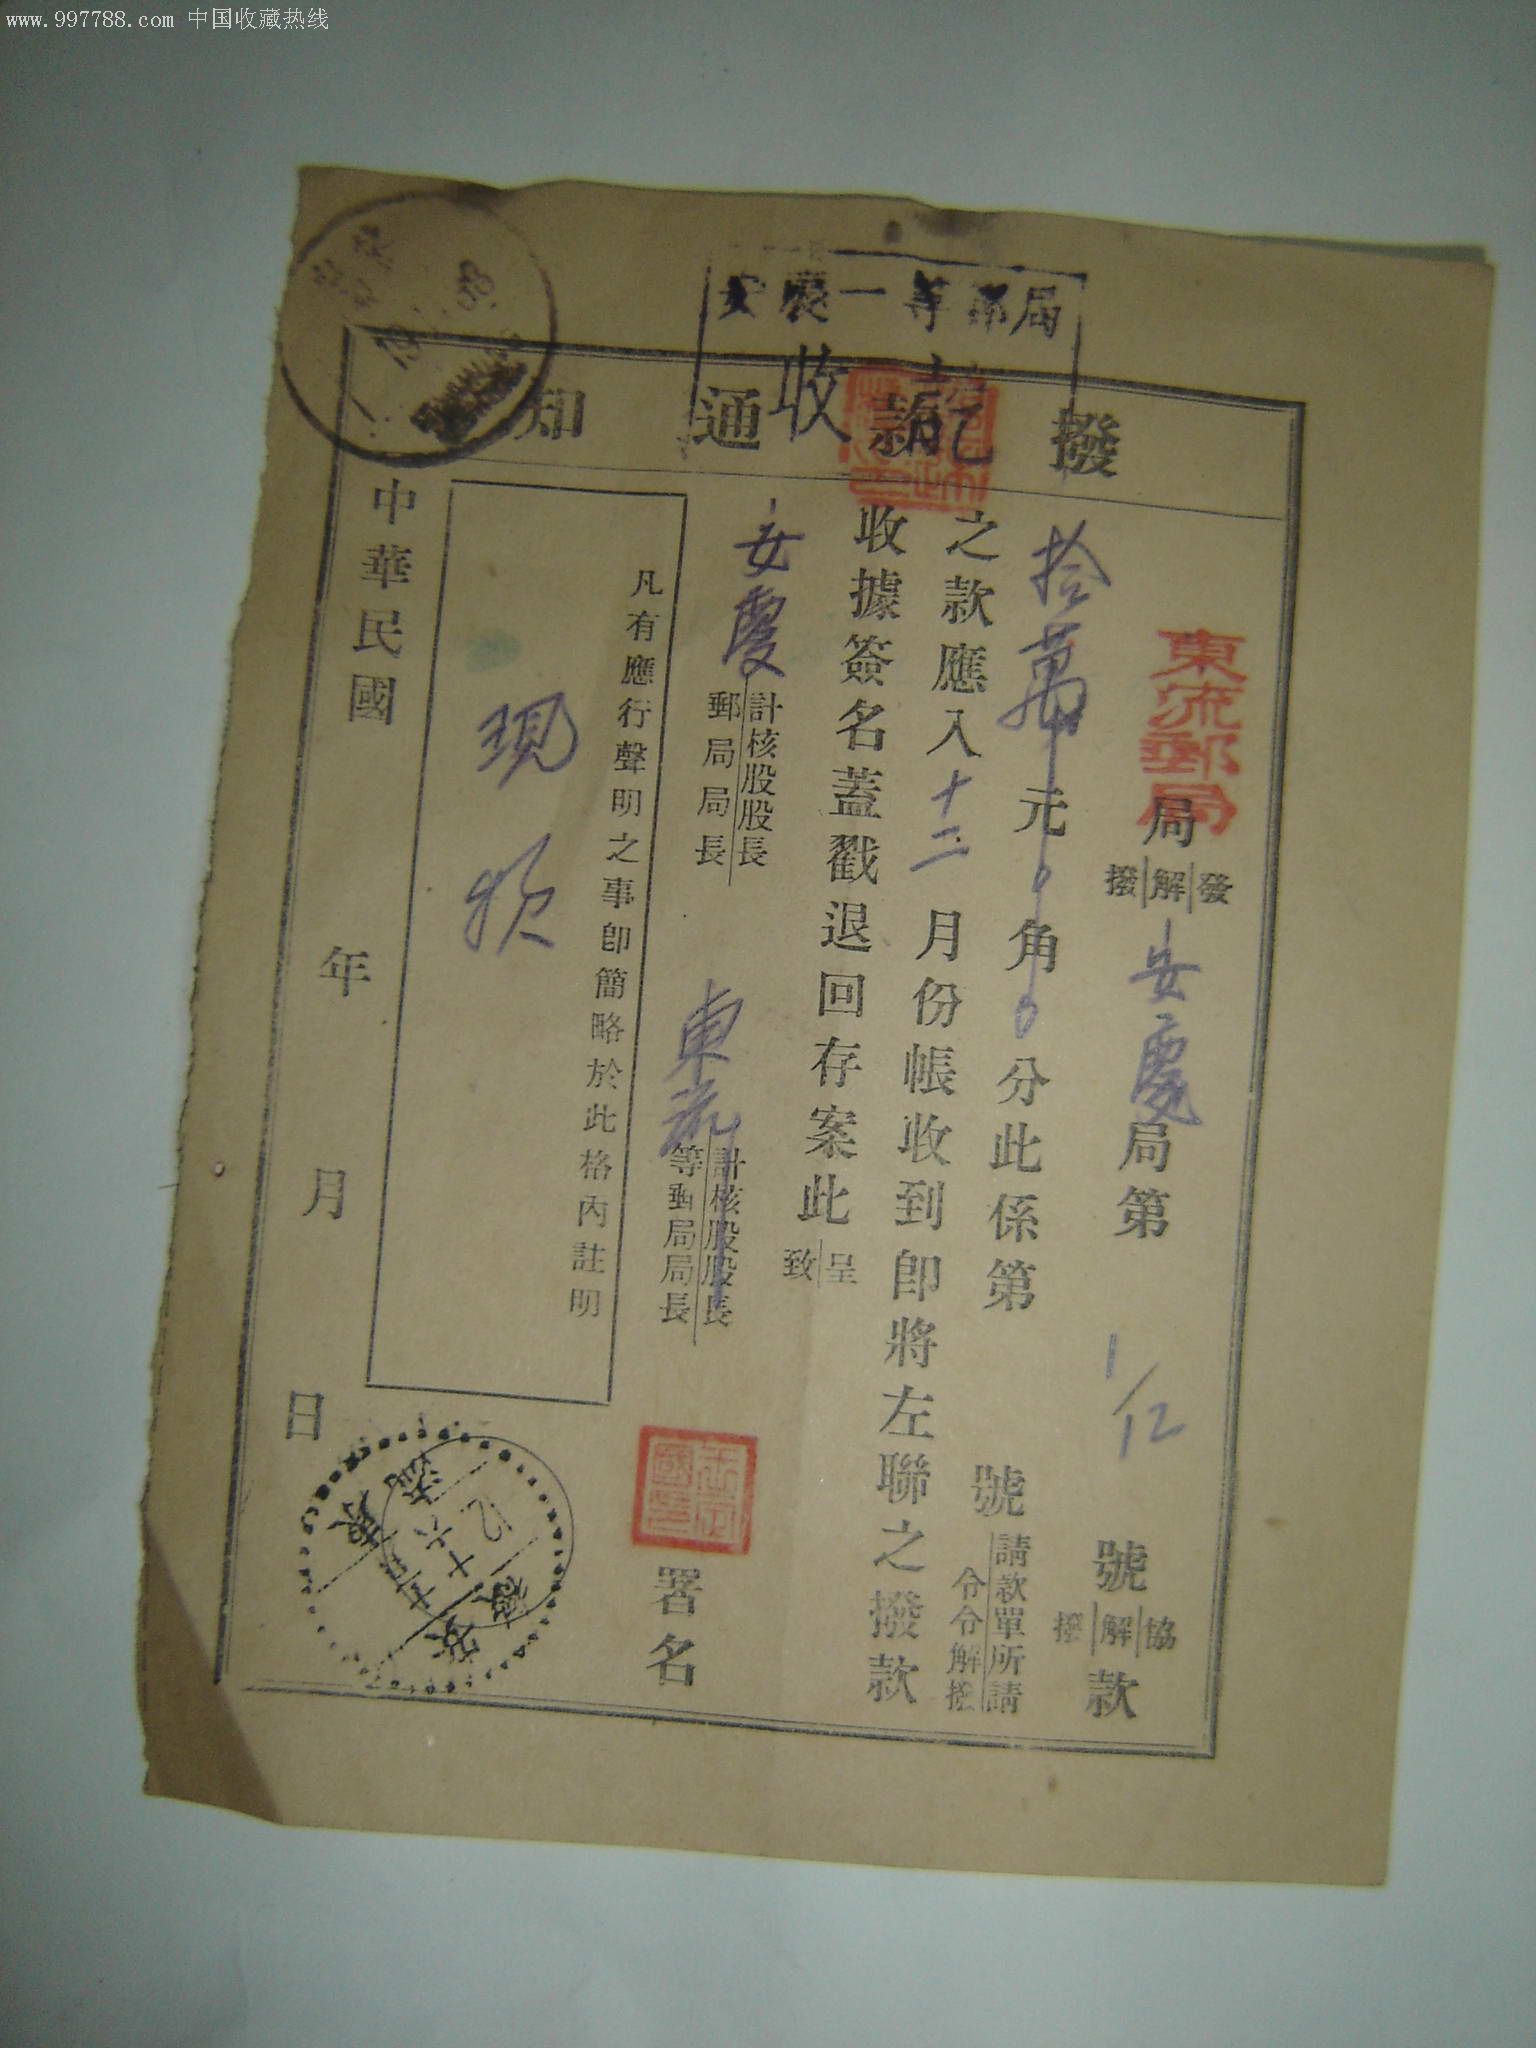 www.997788.com 中国收藏热线
安慶一等郵局
收訖
撥款通知
東流郵局
局 發解撥 安慶局第 1/12 號 協解撥 款
拾萬元0角0分此係第 號 請款單所請 令令解撥
之款應入十二月份帳收到即將左聯之撥款
收據簽名蓋戳退回存案此 呈致
安慶 計核股股長 郵局局長
東流 計核股股長 等郵局局長
署名
凡有應行聲明之事即簡略於此格內註明
現款
中華民國 年 月 日